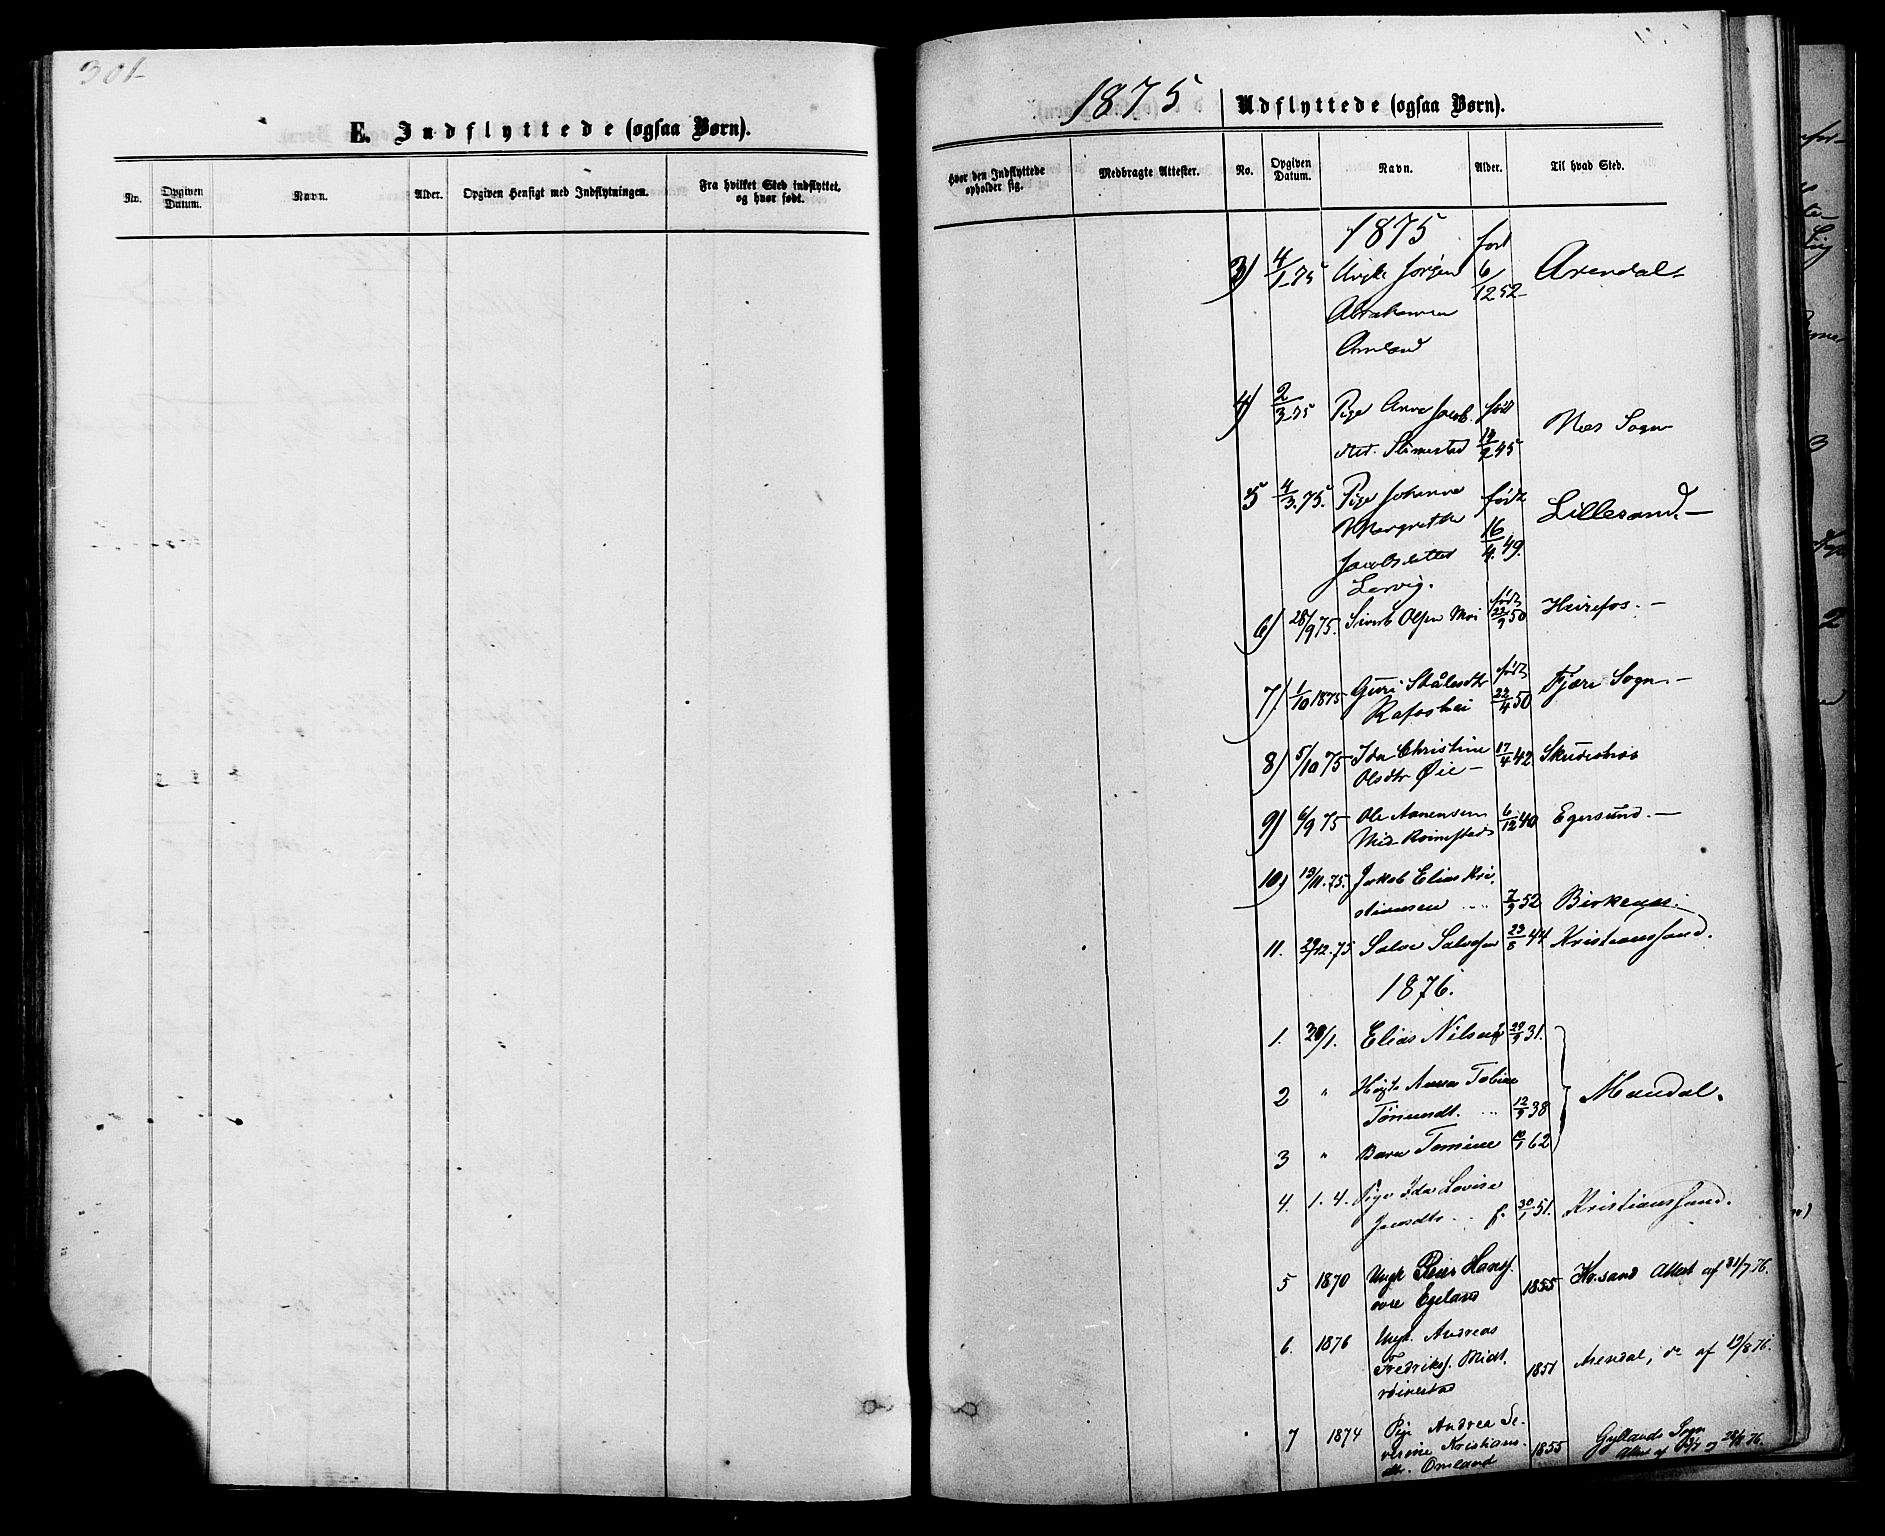 301
E. Indflyttede (ogsaa Børn).
No.
Opgiven Datum.
Navn.
Alder.
Opgiven Hensigt med Indflytningen.
Fra hvilket Sted indflyttet, og hvor født.
1875
Udflyttede (ogsaa Børn).
Hvor den Indflyttede opholder sig.
Medbragte Attester.
No.
Opgiven Datum.
Navn.
Alder.
Til hvad Sted.
1875
3) 4/1 75 Ungk Jørgen 6/12 52 Arendal
Abrahamsen
Omland
4) 2/3 75 Pige Anne Jacobs født Næs Sogn
dtr. 45
5 4/3. 75. Pige Johanne født Lillesand.
Margrethe 16/4. 49.
Jacobsdatter
Lervig.
6) 28/9 75. Sivert Olsen Moi født 22/9 50 Heirefos.
7) 1/10 1875 Guri Stålesdtr født 22/4 50 Fjære Sogn.
Rafoshei
8) 5/10 75 Ida Christine 17/4 42 Skudesnes
Olsdtr Øie
9) 6/9 75 Ole Aanensen 6/12 40 Egersund.
Mid-Röinestad
10) 19/11. 75. Jakob Elias Kri-
stiansen 7/9 52 Birkenes.
11. 29/12. 75 Salve Salvesen 23/8 44 Kristianssand.
1876.
1. 30/1. Elias Nilsen 29/9 31.
2 " Anna Tobine Mandal.
Tønnesdt. 12/9 38
3 " Barn Tomine 10/1 62
4. 1. 4. Pige Ida Lovise
Jensdtr f. 30/1 51. Kristianssand.
5 1870 Ungk Peder Hansf. 1855 Kr.sand Attest af 31/7 76.
øvre Egeland
6. 1876 Ungk. Andreas
Fredriksf. Midt. 1851 Arendal, do af 19/8 76.
röinestad
7 1874 Pige Andrea Se-
verine Kristians- 1855 Gyllands Sogn
dtr. Omland Attest af 28/8 76.